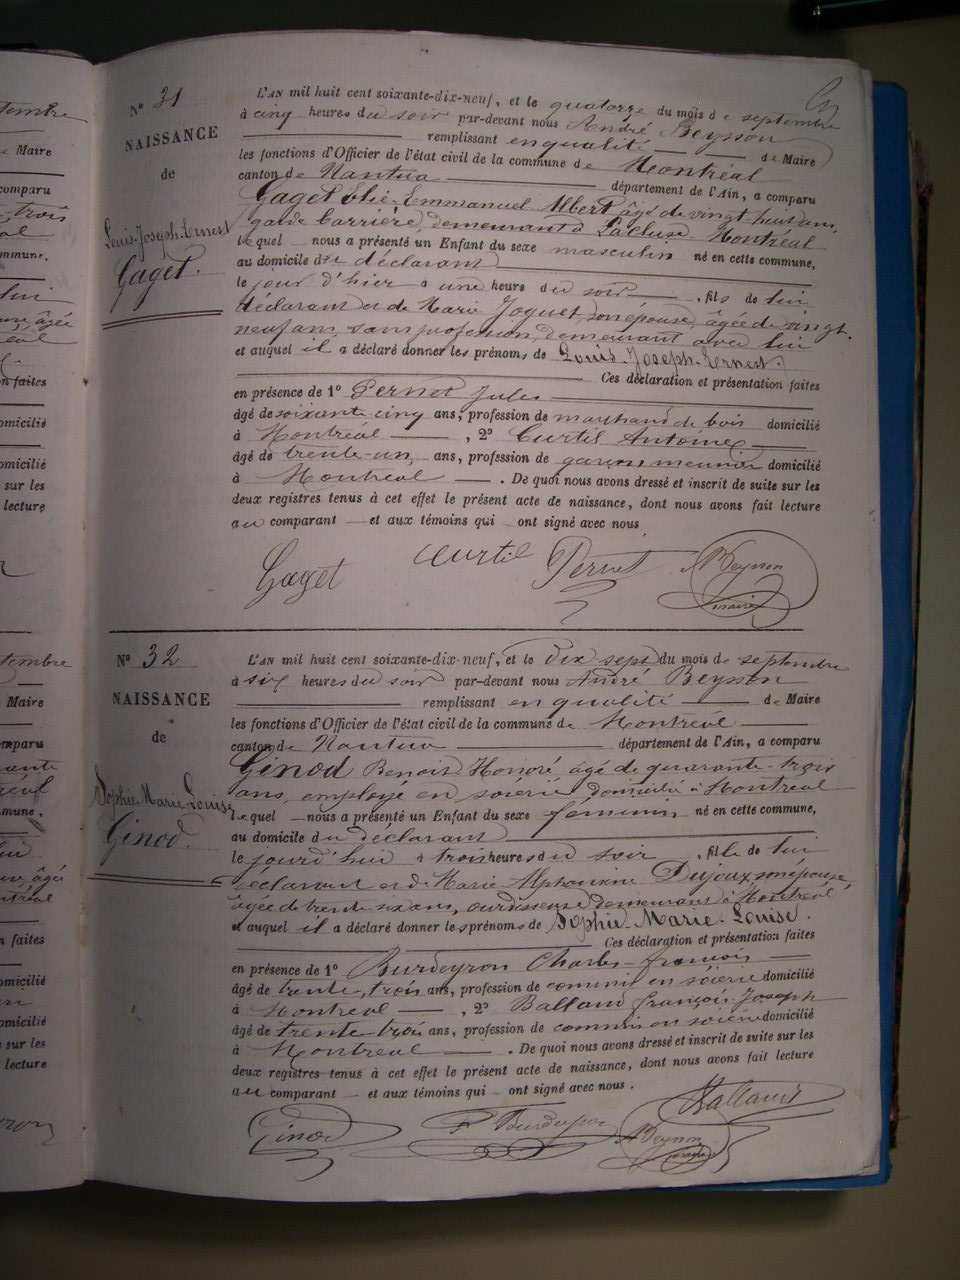 N° 31
NAISSANCE
de
Louis-Joseph-Ernest
Gaget.
L'AN mil huit cent soixante-dix-neuf, et le quatorze du mois de septembre
à cinq heures du soir par-devant nous André Beysson
remplissant en qualité de Maire
les fonctions d'Officier de l'état civil de la commune de Montréal
canton de Nantua département de l'Ain, a comparu
Gaget Elie Emmanuel Albert âgé de vingt-huit ans,
garde barrière, demeurant à La Cluse Montréal
lequel nous a présenté un Enfant du sexe masculin né en cette commune,
au domicile du déclarant
le jour d'hier à une heure du soir, fils de lui
déclarant et de Marie Joguet, son épouse, âgée de vingt
neuf ans, sans profession, demeurant avec lui
et auquel il a déclaré donner les prénoms de Louis-Joseph-Ernest.
Ces déclaration et présentation faites
en présence de 1° Pernet Jules
âgé de soixante cinq ans, profession de marchand de bois domicilié
à Montréal, 2° Curtil Antoine
âgé de trente-un ans, profession de garçon meunier domicilié
à Montréal. De quoi nous avons dressé et inscrit de suite sur les
deux registres tenus à cet effet le présent acte de naissance, dont nous avons fait lecture
au comparant et aux témoins qui ont signé avec nous
Gaget Curtil Pernet A Beysson
maire
N° 32
NAISSANCE
de
Sophie Marie Louise
Ginod.
L'AN mil huit cent soixante-dix-neuf, et le dix sept du mois de septembre
à six heures du soir par-devant nous André Beysson
remplissant en qualité de Maire
les fonctions d'Officier de l'état civil de la commune de Montréal
canton de Nantua département de l'Ain, a comparu
Ginod Benoit Honoré âgé de quarante-trois
ans, employé en soierie domicilié à Montréal
lequel nous a présenté un Enfant du sexe féminin né en cette commune,
au domicile du déclarant
le jourd'hui à trois heures du soir, fille de lui
déclarant et de Marie Alphonsine Dujoux son épouse,
âgée de trente six ans, ourdisseuse demeurant à Montréal
et auquel il a déclaré donner les prénoms de Sophie-Marie-Louise.
Ces déclaration et présentation faites
en présence de 1° Burdeyron Charles-françois
âgé de trente trois ans, profession de commis en soierie domicilié
à Montréal, 2° Balland françois Joseph
âgé de trente trois ans, profession de commis en soierie domicilié
à Montréal. De quoi nous avons dressé et inscrit de suite sur les
deux registres tenus à cet effet le présent acte de naissance, dont nous avons fait lecture
au comparant et aux témoins qui ont signé avec nous.
Balland
Ginod Burdeyron A Beysson